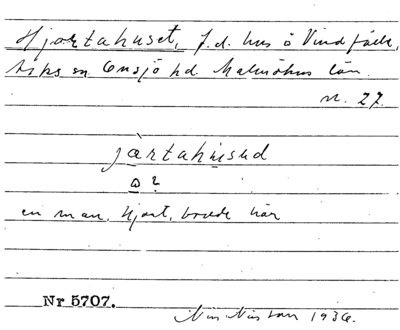 Hjortahuset, f.d. hus å Vindfälle,
Asks sn Onsjö hd. Malmöhus län.
nr. 27.
jærtahused
a 2
en man, Hjort, bodde här
Nr 5707.
1936.